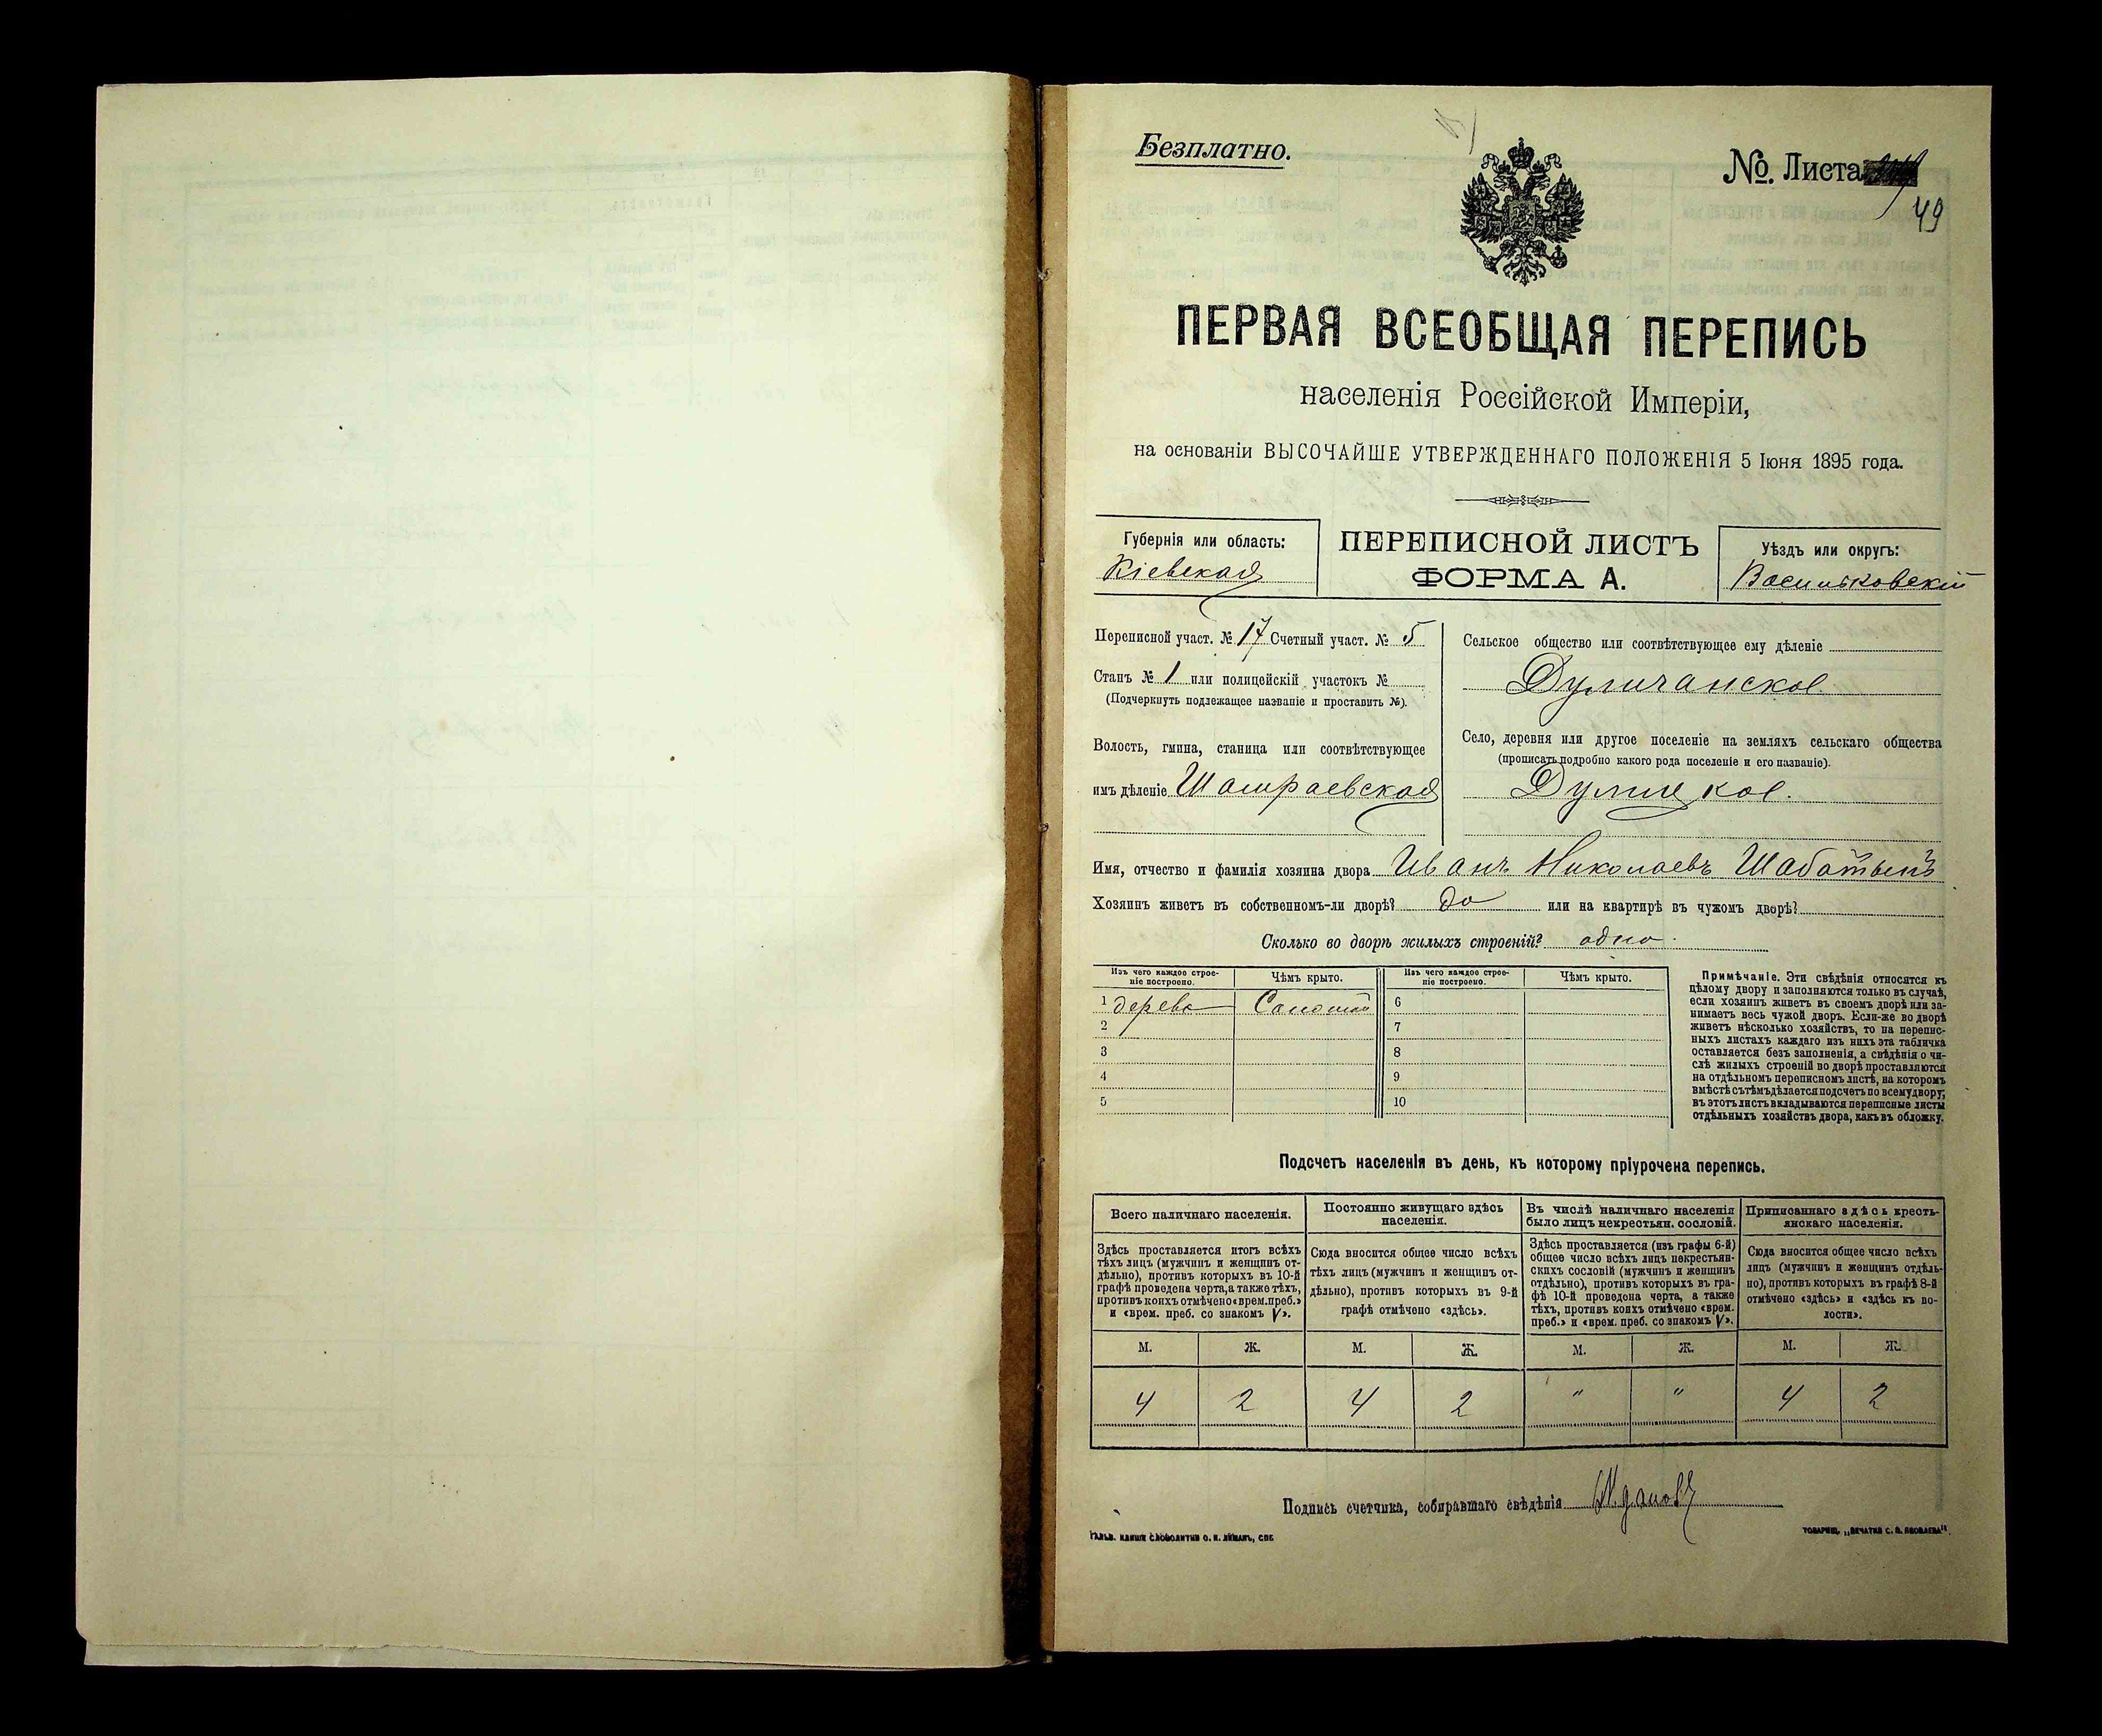 Безплатно.
№. Листа
49
ПЕРВАЯ ВСЕОБЩАЯ ПЕРЕПИСЬ
населенія Россійской Имперіи,
на основаніи ВЫСОЧАЙШЕ УТВЕРЖДЕННАГО ПОЛОЖЕНІЯ 5 Іюня 1895 года.
Губернія или область:
Кіевская
ПЕРЕПИСНОЙ ЛИСТЪ
ФОРМА А.
Уѣздъ или округъ:
Васильковскій
Переписной участ. № 17 Счетный участ. № 5
Станъ № 1 или полицейскій участокъ №
(Подчеркнуть подлежащее названіе и проставить №).
Волость, гмина, станица или соотвѣтствующее
имъ дѣленіе Шамраевская
Сельское общество или соотвѣтствующее ему дѣленіе
Дуличанское
Село, деревня или другое поселеніе на земляхъ сельскаго общества
(прописать подробно какого рода поселеніе и его названіе).
Дулицкое.
Имя, отчество и фамилія хозяина двора Иванъ Николаевъ
Хозяинъ живетъ въ собственномъ-ли дворѣ? да или на квартирѣ въ чужомъ дворѣ?
Сколько во дворѣ жилыхъ строеній? одно.
Изъ чего каждое строе-
ніе построено.
Чѣмъ крыто.
Изъ чего каждое строе-
ніе построено.
Чѣмъ крыто.
1 дерева Соломой 6
2 7
3 8
4 9
5 10
Примѣчаніе. Эти свѣдѣнія относятся къ
цѣлому двору и заполняются только въ случаѣ,
если хозяинъ живетъ въ своемъ дворѣ или за-
нимаетъ весь чужой дворъ. Если-же во дворѣ
живетъ нѣсколько хозяйствъ, то на перепис-
ныхъ листахъ каждаго изъ нихъ эта табличка
оставляется безъ заполненія, а свѣдѣнія о чи-
слѣ жилыхъ строеній во дворѣ проставляются
на отдѣльномъ переписномъ листѣ, на которомъ
вмѣстѣ съ тѣмъ дѣлается подсчетъ по всему двору;
въ этотъ листъ вкладываются переписные листы
отдѣльныхъ хозяйствъ двора, какъ въ обложку.
Подсчетъ населенія въ день, къ которому пріурочена перепись.
Всего наличнаго населенія.
Здѣсь проставляется итогъ всѣхъ
тѣхъ лицъ (мужчинъ и женщинъ от-
дѣльно), противъ которыхъ въ 10-й
графѣ проведена черта, а также тѣхъ,
противъ коихъ отмѣчено «врем. преб.»
и «врем. преб. со знакомъ V».
Постоянно живущаго здѣсь
населенія.
Сюда вносится общее число всѣхъ
тѣхъ лицъ (мужчинъ и женщинъ от-
дѣльно), противъ которыхъ въ 9-й
графѣ отмѣчено «здѣсь».
Въ числѣ наличнаго населенія
было лицъ некрестьян. сословій.
Здѣсь проставляется (изъ графы 6-й)
общее число всѣхъ лицъ некрестьян-
скихъ сословій (мужчинъ и женщинъ
отдѣльно), противъ которыхъ въ гра-
фѣ 10-й проведена черта, а также
тѣхъ, противъ коихъ отмѣчено «врем.
преб.» и «врем. преб. со знакомъ V».
Приписаннаго здѣсь кресть-
янскаго населенія.
Сюда вносится общее число всѣхъ
лицъ (мужчинъ и женщинъ отдѣль-
но), противъ которыхъ въ графѣ 8-й
отмѣчено «здѣсь» и «здѣсь къ во-
лости».
М. Ж. М. Ж. М. Ж. М. Ж.
4 2 4 2 " " 4 2
Подпись счетчика, собиравшаго свѣдѣнія
ГАЛЬВ. КЛИШЕ СЛОВОЛИТНИ О. И. ЛЕМАНЪ, СПБ.
ТОВАРИЩ. „ПЕЧАТНЯ С. П. ЯКОВЛЕВА".